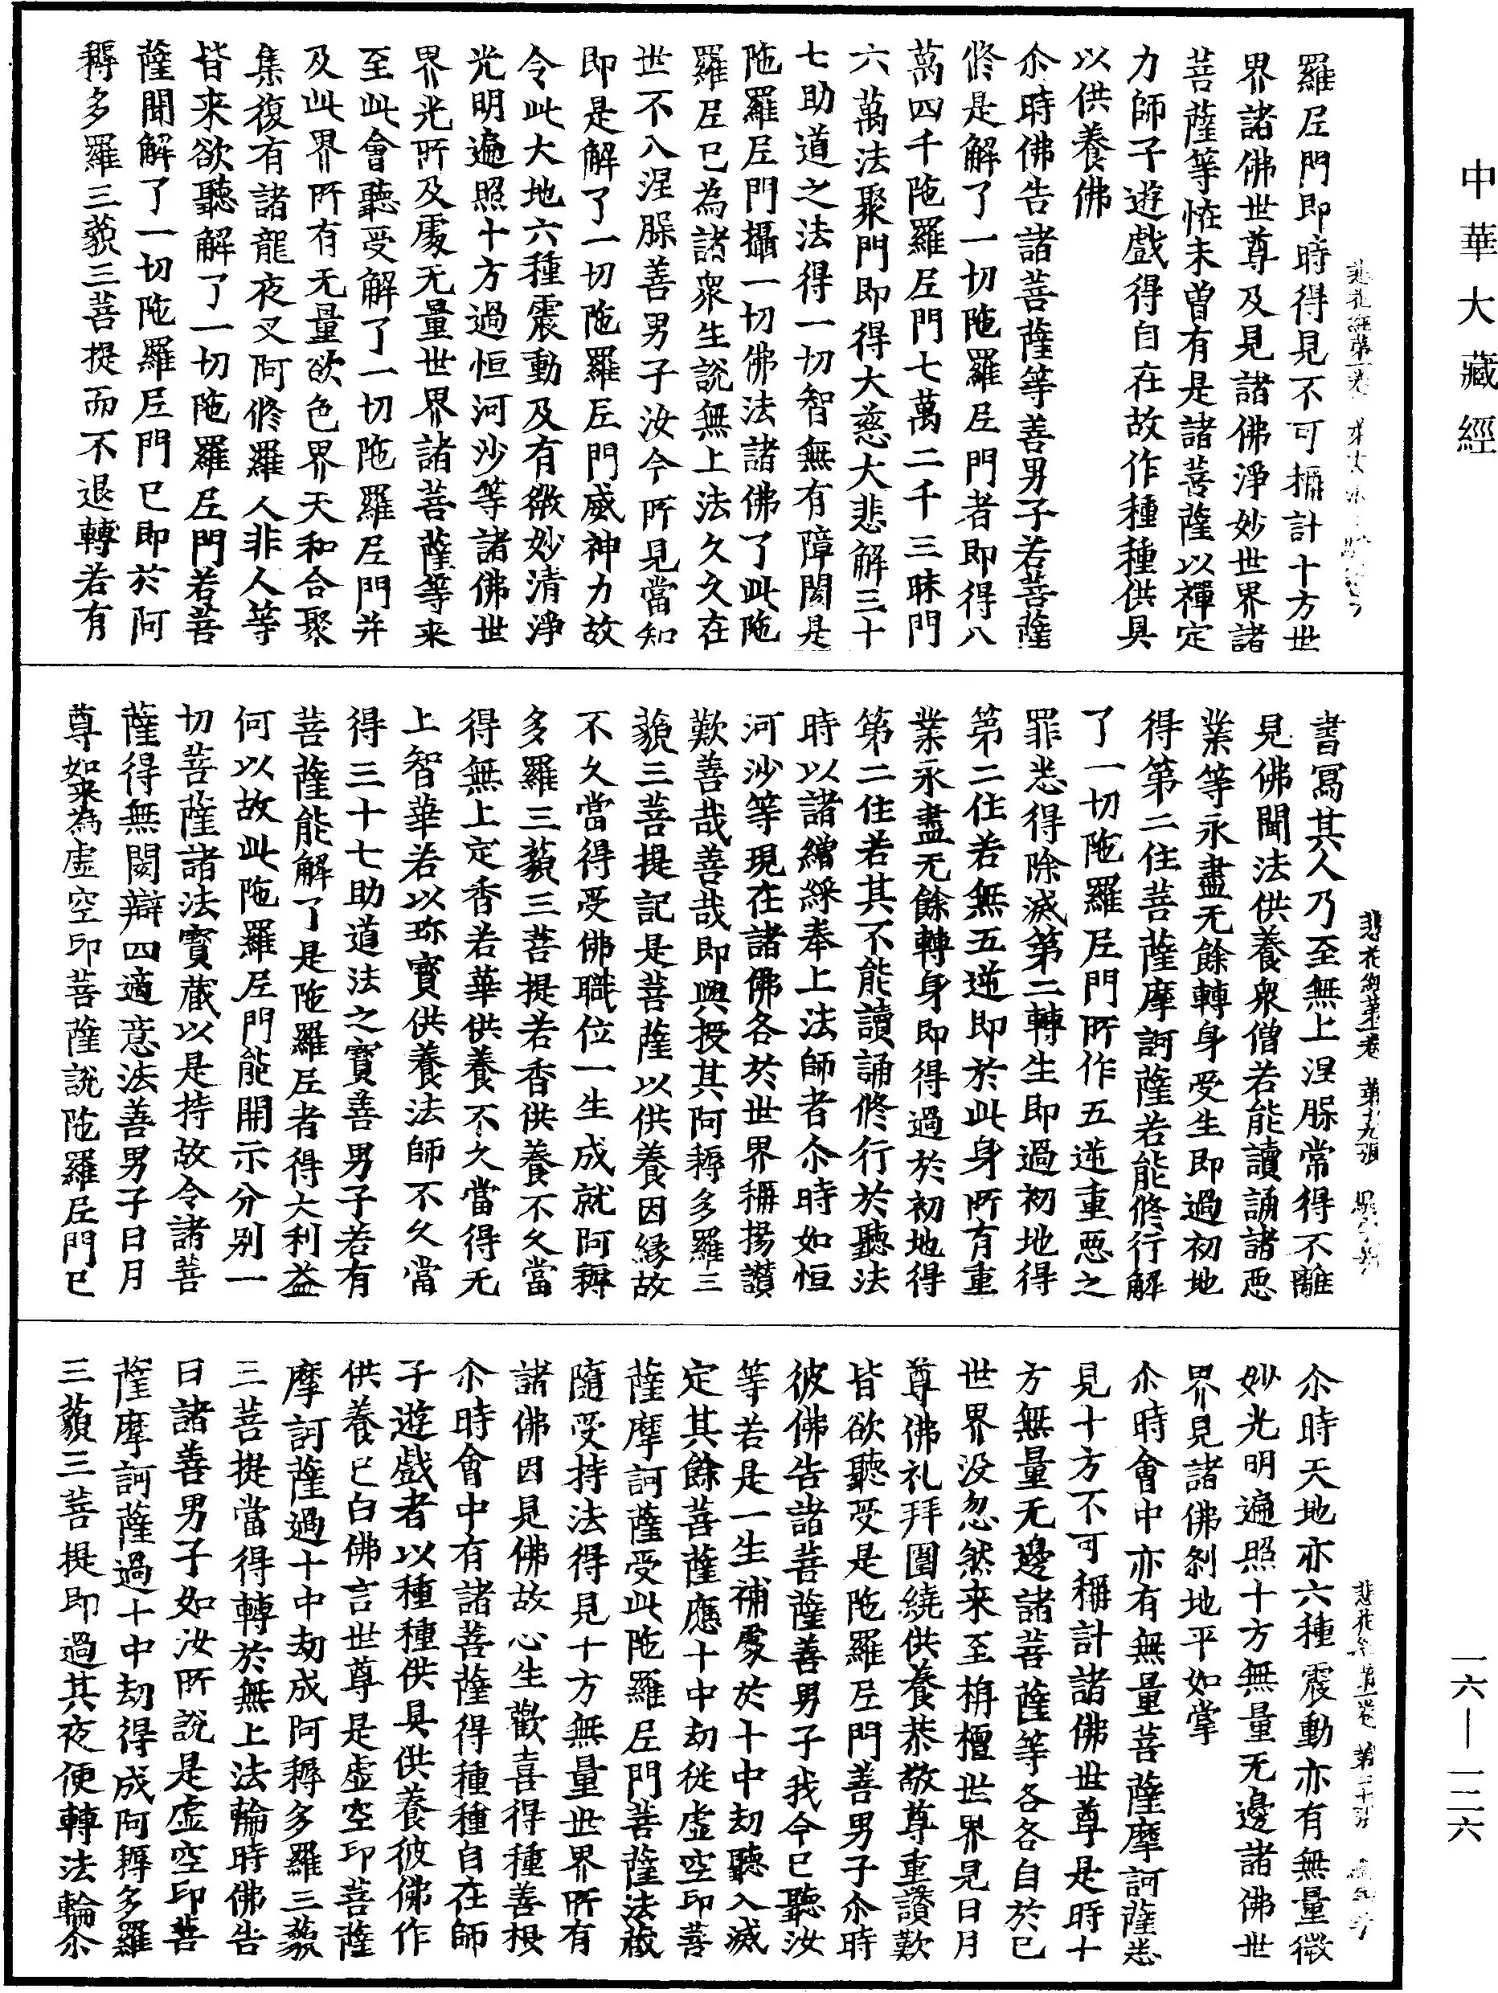 中華大藏經
羅尼門即時得見不可稱計十方世
界諸佛世尊及見諸佛淨妙世界諸
菩薩等恠未曾有是諸菩薩以禪定
力師子遊戲得自在故作種種供具
以供養佛
尒時佛告諸菩薩等善男子若菩薩
修是解了一切陁羅尼門者即得八
萬四千陁羅尼門七萬二千三昧門
六萬法聚門即得大慈大悲解三十
七助道之法得一切智無有障閡是
陁羅尼門攝一切佛法諸佛了此陁
羅尼已為諸衆生說無上法久久在
世不入涅脲善男子汝今所見當知
即是解了一切陁羅尼門威神力故
令此大地六種震動及有微妙清淨
光明遍照十方過恒河沙等諸佛世
界光所及處无量世界諸菩薩等来
至此會聽受解了一切陁羅尼門并
及此界所有无量欲色界天和合聚
集復有諸龍夜叉阿修羅人非人等
皆来欲聽解了一切陁羅尼門若菩
薩聞解了一切陁羅尼門已即於阿
耨多羅三藐三菩提而不退轉若有
悲花經第一卷
書寫其人乃至無上涅脲常得不離
見佛聞法供養衆僧若能讀誦諸惡
業等永盡无餘轉身受生即過初地
得第二住菩薩摩訶薩若能修行解
了一切陁羅尼門所作五逆重惡之
罪悉得除滅第二轉生即過初地得
第二住若無五逆即於此身所有重
業永盡无餘轉身即得過於初地得
第二住若其不能讀誦修行於聽法
時以諸繒綵奉上法師者尒時如恒
河沙等現在諸佛各於世界稱揚讚
歎善哉善哉即與授其阿耨多羅三
藐三菩提記是菩薩以供養因縁故
不久當得受佛職位一生成就阿耨
多羅三藐三菩提若香供養不久當
得無上定香若華供養不久當得无
上智華若以珎寶供養法師不久當
得三十七助道法之寶善男子若有
菩薩能解了是陁羅尼者得大利益
何以故此陁羅尼門能開示分别一
切菩薩諸法寶藏以是持故令諸菩
薩得無閡辯四適意法善男子日月
尊如来為虛空印菩薩說陁羅尼門已
悲花經第一卷 第十九張
尒時天地亦六種震動亦有無量微
妙光明遍照十方無量无邊諸佛世
界見諸佛剎地平如掌
尒時會中亦有無量菩薩摩訶薩悉
見十方不可稱計諸佛世尊是時十
方無量无邊諸菩薩等各各自於已
世界没忽然来至栴檀世界見日月
尊佛礼拜圍繞供養恭敬尊重讚歎
皆欲聽受是陁羅尼門善男子尒時
彼佛告諸菩薩善男子我今已聽汝
等若是一生補處於十中劫聽入滅
定其餘菩薩應十中劫從虛空印菩
薩摩訶薩受此陁羅尼門菩薩法蔵
隨受持法得見十方無量世界所有
諸佛因見佛故心生歡喜得種善根
尒時會中有諸菩薩得種種自在師
子遊戲者以種種供具供養彼佛作
供養已白佛言世尊是虛空印菩薩
摩訶薩過十中劫成阿耨多羅三藐
三菩提當得轉於無上法輪時佛告
曰諸善男子如汝所說是虛空印菩
薩摩訶薩過十中劫得成阿耨多羅
三藐三菩提即過其夜便轉法輪尒
悲花經第一卷 第二十張
一六—一二六